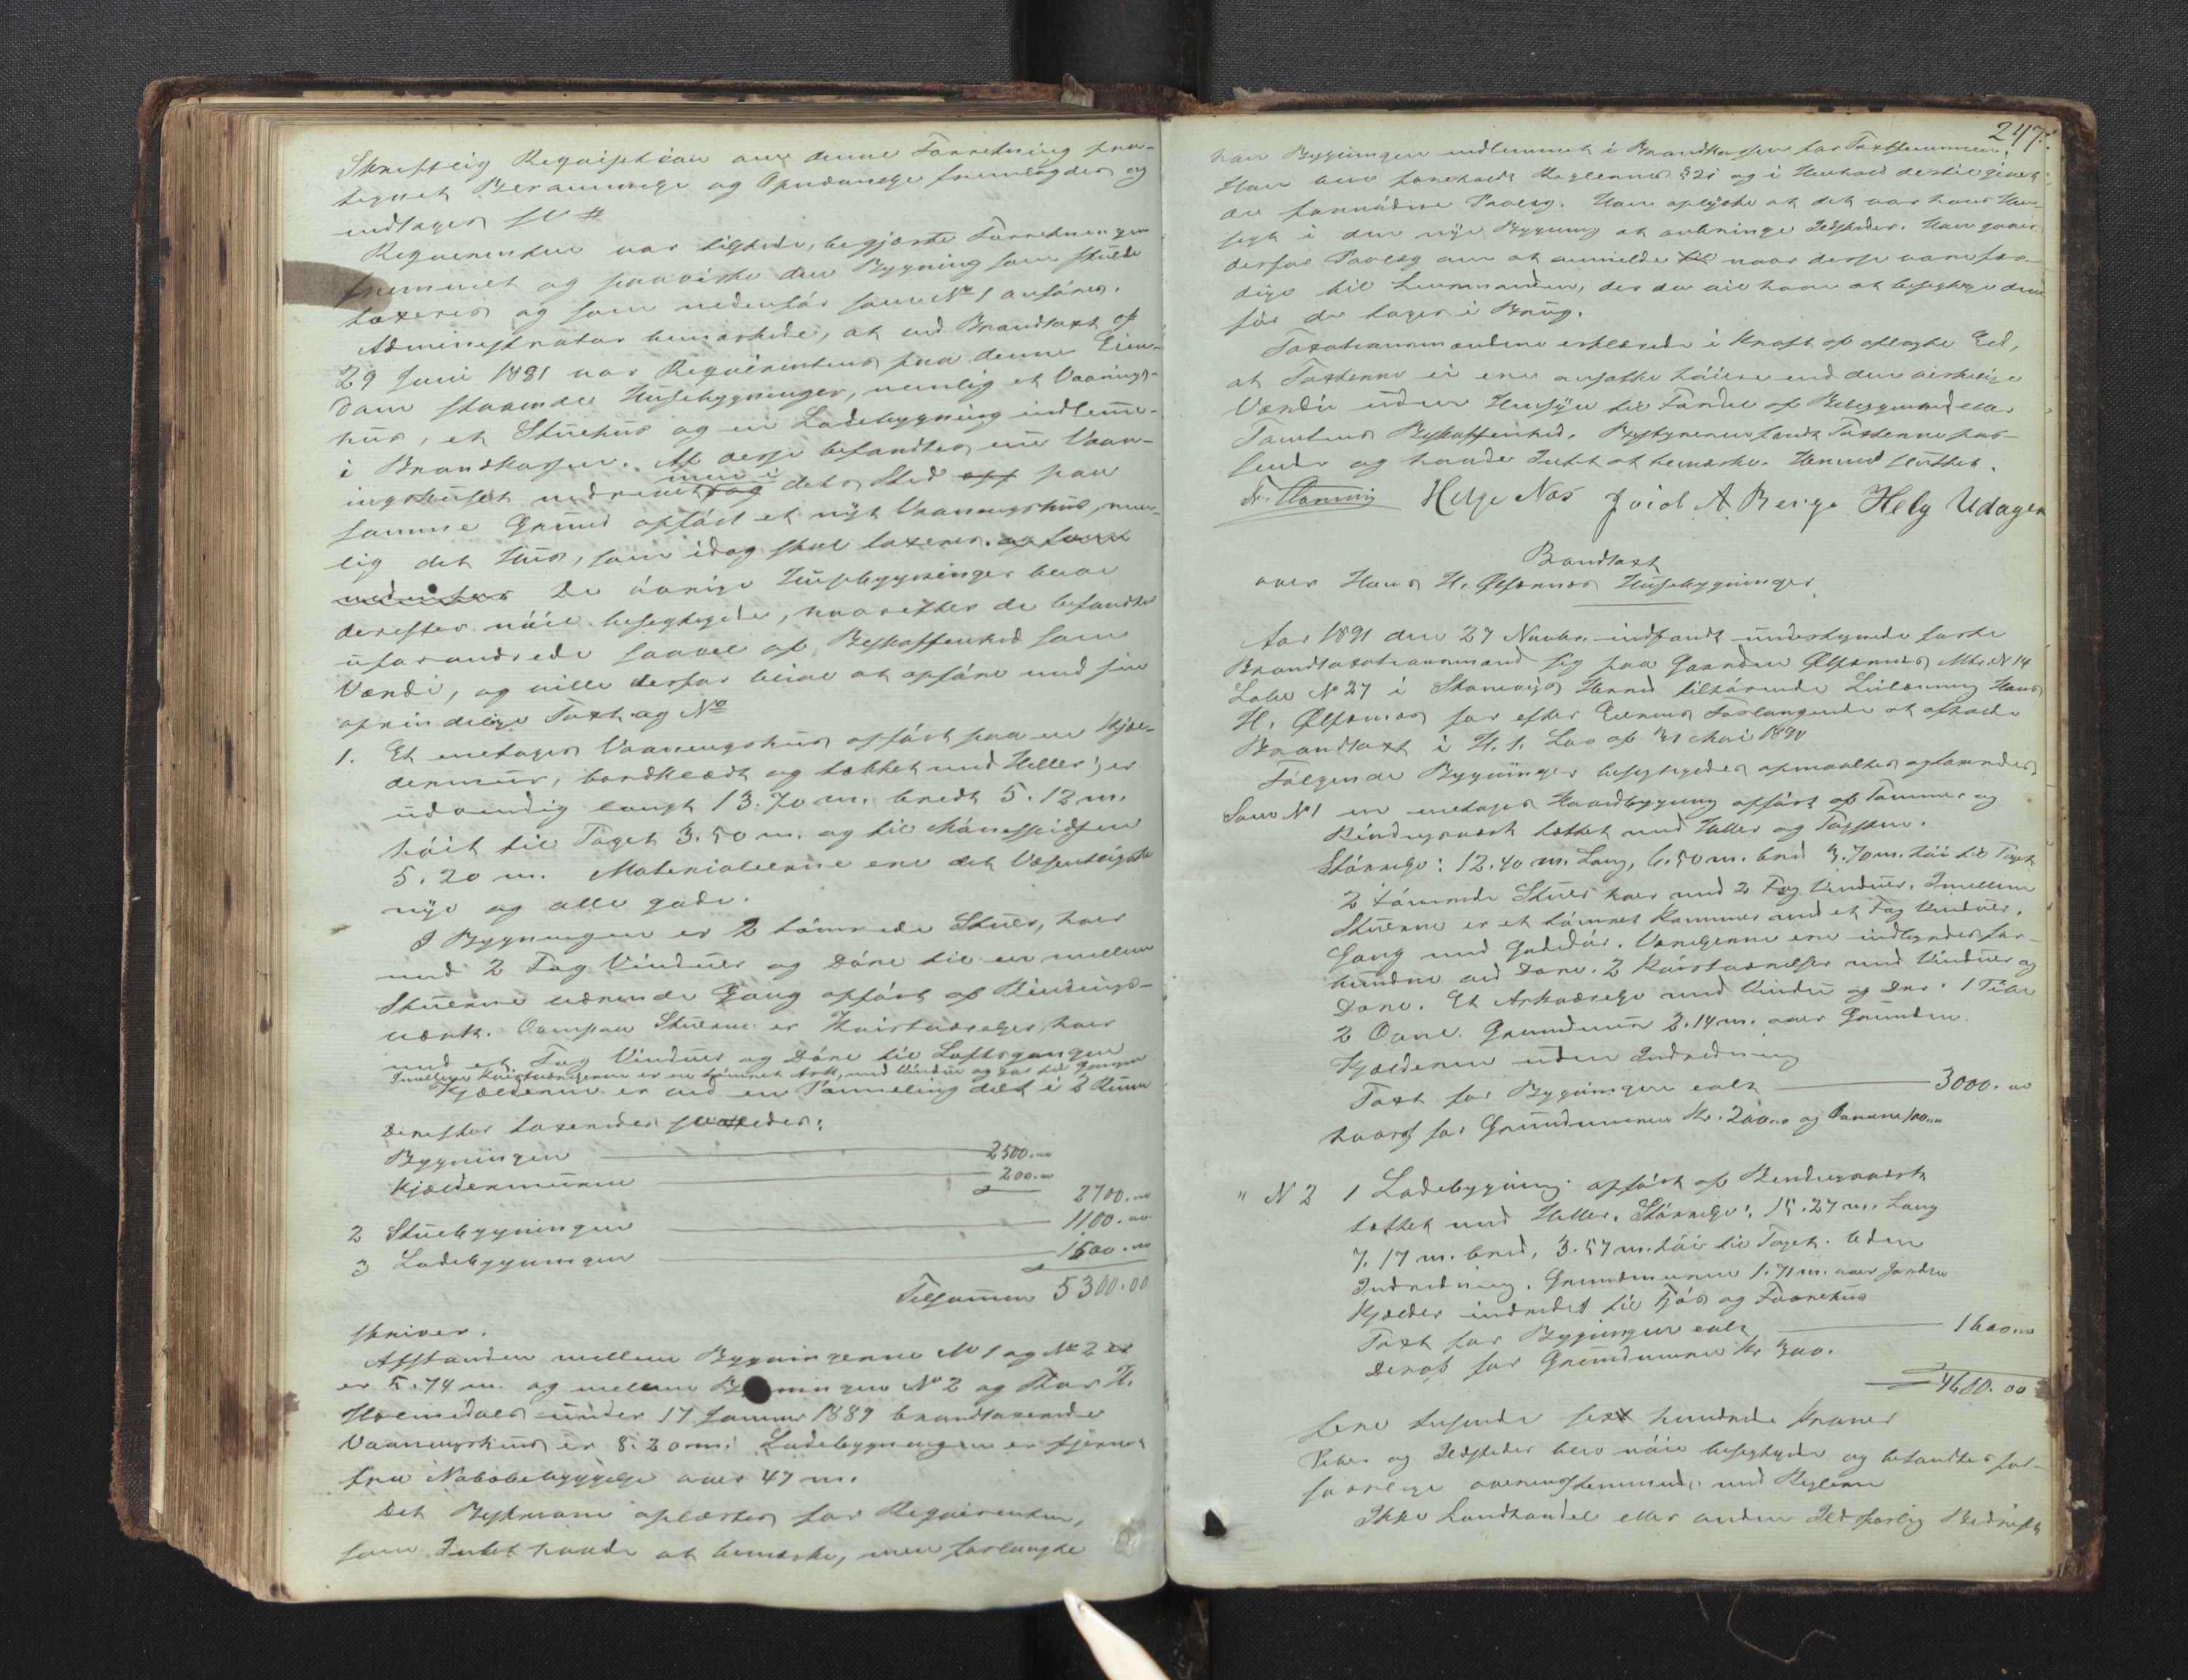 Skriftlig Requisition om denne Forretning fra-
tegnet Berammelse og Opnævnelse fremlagdes og
indtages slt #
Requirenten var tilstede, begjærte Forretningen
fremmet og paaviste den Bygning som skulde
taxeres og som nedenfor som No 1 anføres.
Administrator bemærkede, at ved Brandtaxt af
29 Juni 1881 var Requirentens paa denne Eien-
dom staaende Husebygninger, nemlig et Vaanings-
hus, et Stuehus og en Ladebygning indlemm-
i Brandkassen. Af disse befandtes nu Vaan-
ingshuset nedrevet men i dets Sted paa
samme Grund opført et nyt Vaaningshus, nem-
lig det Hus, som idag skal taxeres. og som
nedenfor De øvrige Husebygninger blev
derefter nøie besigtigede, hvorefter de befandtes
uforandrede saavel af Beskaffenhed som
Værdi, og ville derfor blive at opføre med sin
oprindelige Taxt og No
1. Et enetages Vaaningshus opført paa en Kjæl-
dermuur, bordklædt og tækket med Heller; er
udvendig langt 13.70 m. bredt 5.12 m.
høit til Taget 3.50 m. og til Mønespidsen
5.20 m. Materialerne ere det Væsentligste
nye og alle gode.
I Bygningen er 2 tømrede Stuer, hver
med 2 Fag Vinduer og Døre til en mellem
Stuerne værende Gang opført af Bindings-
værk. Ovenpaa Stuerne er Kvistværelser, hver
med et Fag Vinduer og Døre til Loftsgangen
Imellem Kvistværelserne er en tømret Ark, med Vindue og Dør til Gangen
Kjælderen er ved en Tømmeling delt i 2 Rum
Derefter taxeredes saaledes:
Bygningen 2500.00
Kjældermuren 200.00
2700.00
2 Stuebygningen 1100.00
3 Ladebygningen 1500.00
Tilsammen 5300.00
skriver.
Afstanden mellem Bygningerne No 1 og No 2 er
er 5.74 m. og mellem Bygningen No 2 og Thor H.
Holmedals under 17 Januar 1889 brandtaxerede
Vaaningshus er 8.20 m. Ladebygningen er fjernet
fra Nabobebyggelse over 47 m.
Det Beskrevne oplæstes for Requirenten,
som Intet havde at bemærke, men forlangte
247.
han Bygningen indlemmet i Brandkassen for Taxtsummen.
Han blev foreholdt Reglernes § 21 og i Henhold dertil givet
de fornødne Paalæg. Han oplyste at det var hans Hen-
sigt i den nye Bygning at anbringe Ildsteder. Han gaves
derfor Paalæg om at anmelde til naar disse vare fær-
dige til Lensmanden, der da vil have at besigtige dem
før de tages i Brug.
Taxationsmændene erklærede i Kraft af aflagte Ed,
at Taxterne ei ere ansatte høiere end den virkelige
Værdi uden Hensyn til Fordel af Beliggenhed eller
Tomtens Beskaffenhed. Bestyreren fandt Taxterne pas-
sende og havde Intet at bemærke. Hermed sluttet.
Helge Nos Joid A. Berge Helg Udagen
Brandtaxt
over Hans H. Ølfernes Husebygninger
Aar 1891 den 27 Novbr. indfandt undertegnede faste
Brandtaxationsmænd sig paa Gaarden Ølfernes Mtr. N 14
Løbe No 27 i Skonevigs Herred tilhørende Leilænding Hans
H. Ølfernes for efter Eierens Forlangende at afholde
Brandtaxt i H. t. Lov af 31 Mai 1890
Følgende Bygninger besigtigedes opmaaltes og taxeredes
Som No 1 en enetages Vaanbygning opført af Tømmer og
Bindingsværk tækket med Heller og Tagsten.
Størrelse: 12.40 m. Lang, 6.50 m. bred 3.70 m. høi til Taget
2 tømrede Stuer hver med 2 Fag Vinduer. Imellem
Stuerne er et tømret Kammer med et Fag Vinduer.
Gang med Gadedør. Værelserne ere indbyrdes for-
bundne ved Døre. 2 Kvistværelser med Vinduer og
Døre. Et Arkværelse med Vindu og Dør. 1 Pibe
2 Ovne. Grundmur 2.14 m. over Grunden.
Kjælderen uden Indredning
Taxt for Bygningen ialt 3000.00
hvoraf for Grundmuren Kr. 200.00 og Ovnene 100.00
" N 2 1 Ladebygning opført af Bindingsværk
tækket med Heller. Størrelse: 15.27 m. Lang
7.17 m. bred, 3.57 m. høi til Taget. Uden
Indredning. Grundmuren 1.71 m. over Jorden
Kjælder indredet til Fjøs og Faarehus
Taxt for Bygningen ialt 1600.00
Deraf for Grundmuren Kr 300.
4600.00
fire tusende sex hundrede Kroner
Piber og Ildsteder blev nøie besigtigede og befandtes for-
svarlige overensstemmende med Reglerne
Ikke Landhandel eller anden Ildsfarlig Bedrift